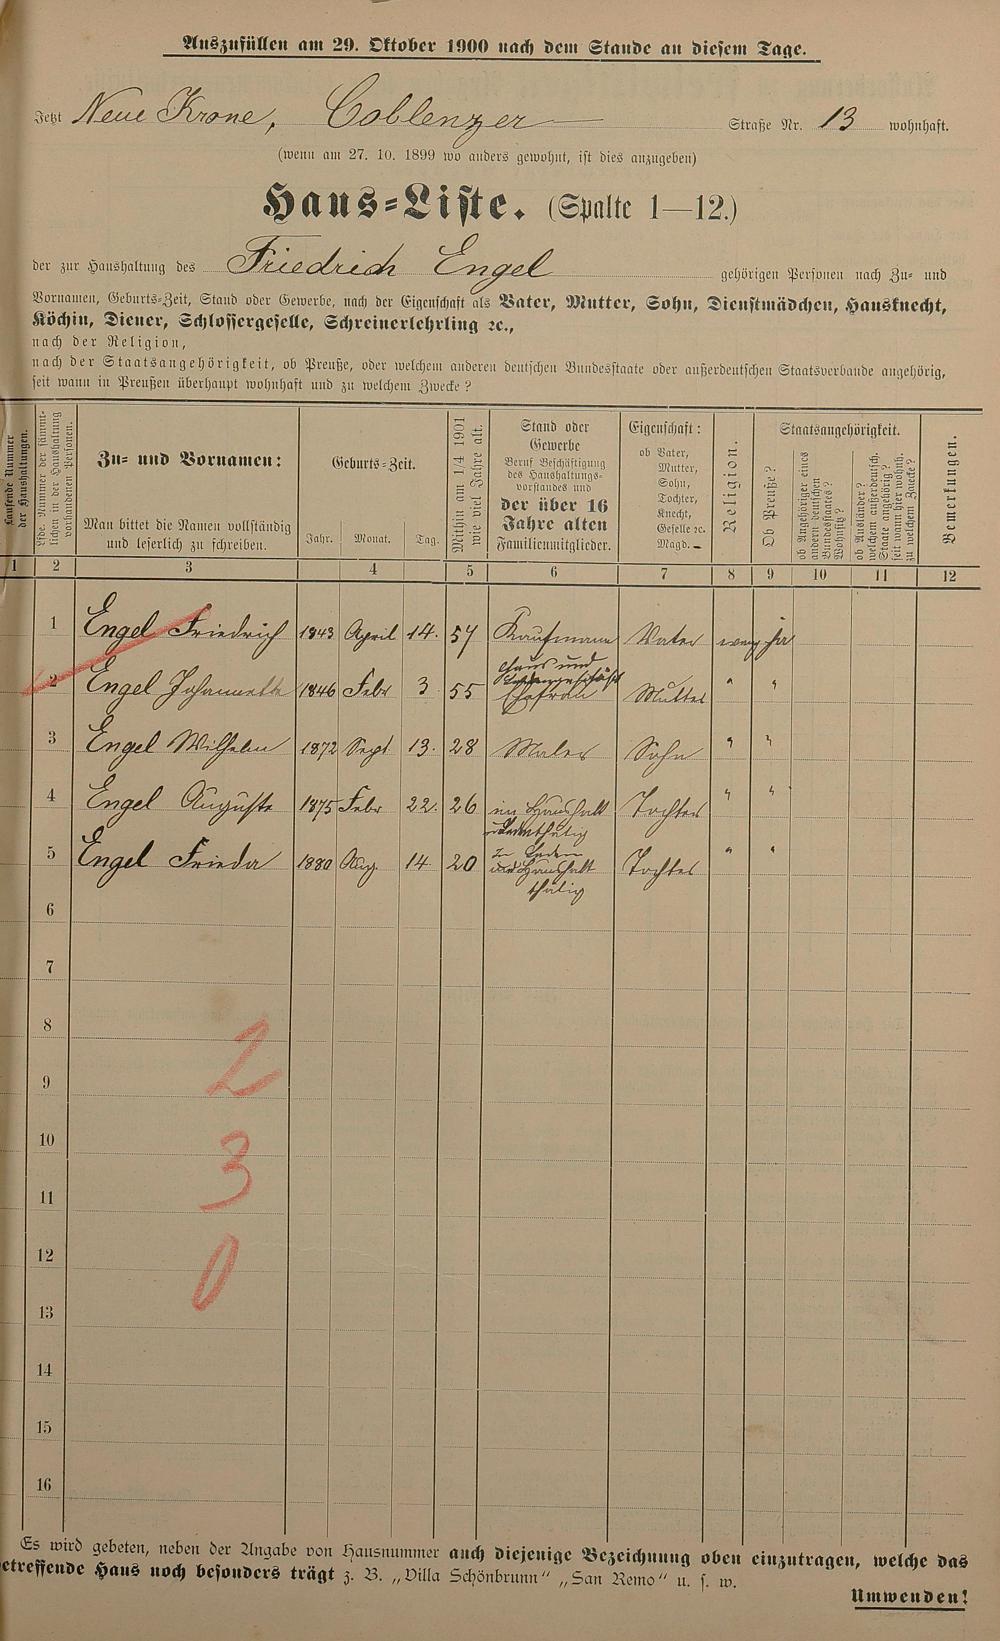 Auszufüllen am 29. Oktober 1900 nach dem Stande an diesem Tage.
Jetzt Neue Krone, Coblenzer Straße Nr. 13 wohnhaft.
(wenn am 27. 10. 1899 wo anders gewohnt, ist dies anzugeben)
Haus-Liste. (Spalte 1—12.)
der zur Haushaltung des Friedrich Engel gehörigen Personen nach Zu- und
Vornamen, Geburts-Zeit, Stand oder Gewerbe, nach der Eigenschaft als Vater, Mutter, Sohn, Dienstmädchen, Hausknecht,
Köchin, Diener, Schlossergeselle, Schreinerlehrling ꝛc.,
nach der Religion,
nach der Staatsangehörigkeit, ob Preuße, oder welchem anderen deutschen Bundesstaate oder außerdeutschen Staatsverbande angehörig,
seit wann in Preußen überhaupt wohnhaft und zu welchem Zwecke?
Laufende Nummer
der Haushaltungen.
Lfde. Nummer der sämmt-
lichen in der Haushaltung
vorhandenen Personen.
Zu- und Vornamen:
Man bittet die Namen vollständig
und leserlich zu schreiben.
Geburts-Zeit.
Jahr. Monat. Tag.
Mithin am 1/4 1901
wie viel Jahre alt.
Stand oder
Gewerbe
Beruf Beschäftigung
des Haushaltungs-
vorstandes und
der über 16
Jahre alten
Familienmitglieder.
Eigenschaft:
ob Vater,
Mutter,
Sohn,
Tochter,
Knecht,
Geselle ꝛc.
Magd.
Religion.
Staatsangehörigkeit.
Ob Preuße?
ob Angehöriger eines
andern deutschen
Bundesstaates?
Wohnsitz?
ob Ausländer?
welchem außerdeutsch.
Staate angehörig?
seit wann hier wohnh.
zu welchem Zwecke?
Bemerkungen.
1 2 3 4 5 6 7 8 9 10 11 12
1 Engel Friedrich 1843 April 14. 57 Kaufmann Vater evang ja
2 Engel Johannetta 1846 Febr 3 55 Haus und
Ehefrau Mutter " "
3 Engel Wilhelm 1872 Sept 13. 28 Maler Sohn " "
4 Engel Auguste 1875 Febr 22. 26 im Haushalt Tochter " "
thätig
5 Engel Frieda 1880 Aug. 14 20 Im Laden Tochter " "
und Haushalt
thätig
6
7
8
2
9
10
3
11
12
0
13
14
15
16
Es wird gebeten, neben der Angabe von Hausnummer auch diejenige Bezeichnung oben einzutragen, welche das
betreffende Haus noch besonders trägt z. B. „Villa Schönbrunn" „San Remo" u. s. w.
Umwenden!